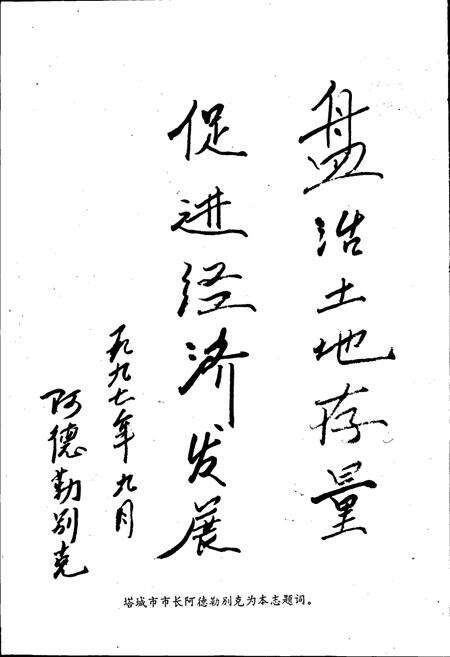 盘活土地存量
促进经济发展
一九九七年九月
阿德勒别克
塔城市市长阿德勒别克为本志题词。